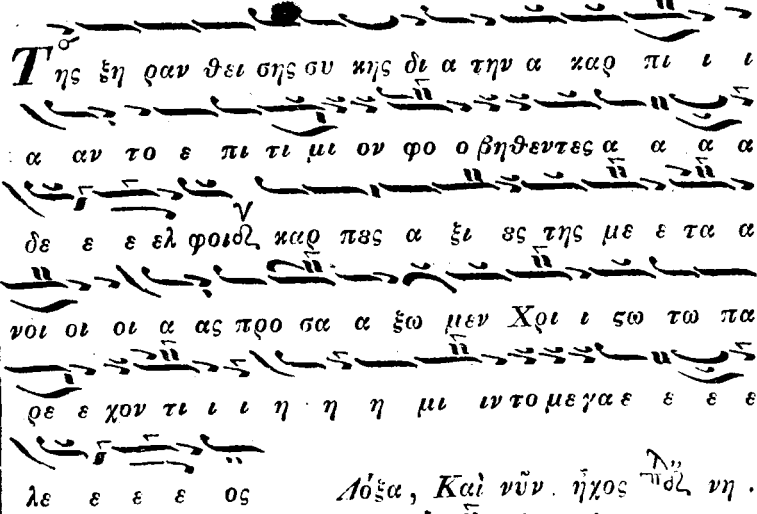 Της ξη ραν θει σης συ κης δι α την α καρ πι ι ι
α αν το ε πι τι μι ον φο ο βηθεντες α α α α
δε ε ε ελ φοι καρ πȣς α ξι ȣς της με ε τα α
νοι οι οι α ας προ σα α ξω μεν Χρι ι ϛω τω πα
ρε ε χον τι ι ι η η η μι ιν το μεγα ε ε ε ε
λε ε ε ε ος
Δόξα, Καὶ νῦν. ἦχος νη.